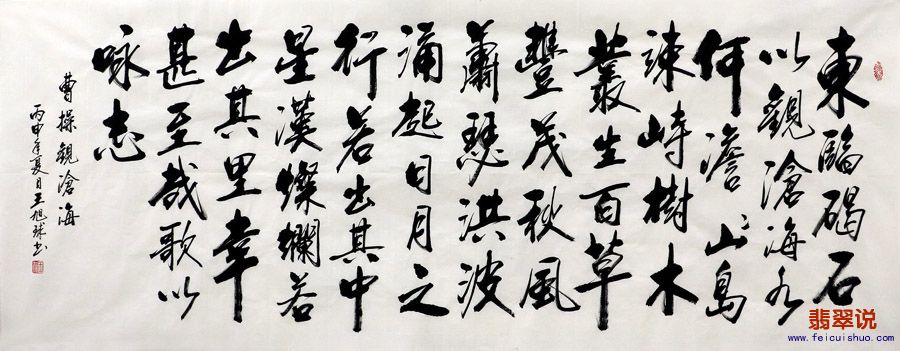 東臨碣石
以觀滄海水
何澹〻山島
竦峙樹木
叢生百草
豐茂秋風
蕭瑟洪波
涌起日月之
行若出其中
星漢燦爛若
出其里幸
甚至哉歌以
咏志
曹操觀滄海
丙申年夏日王旭球书
翡翠说
www.feicuishuo.com